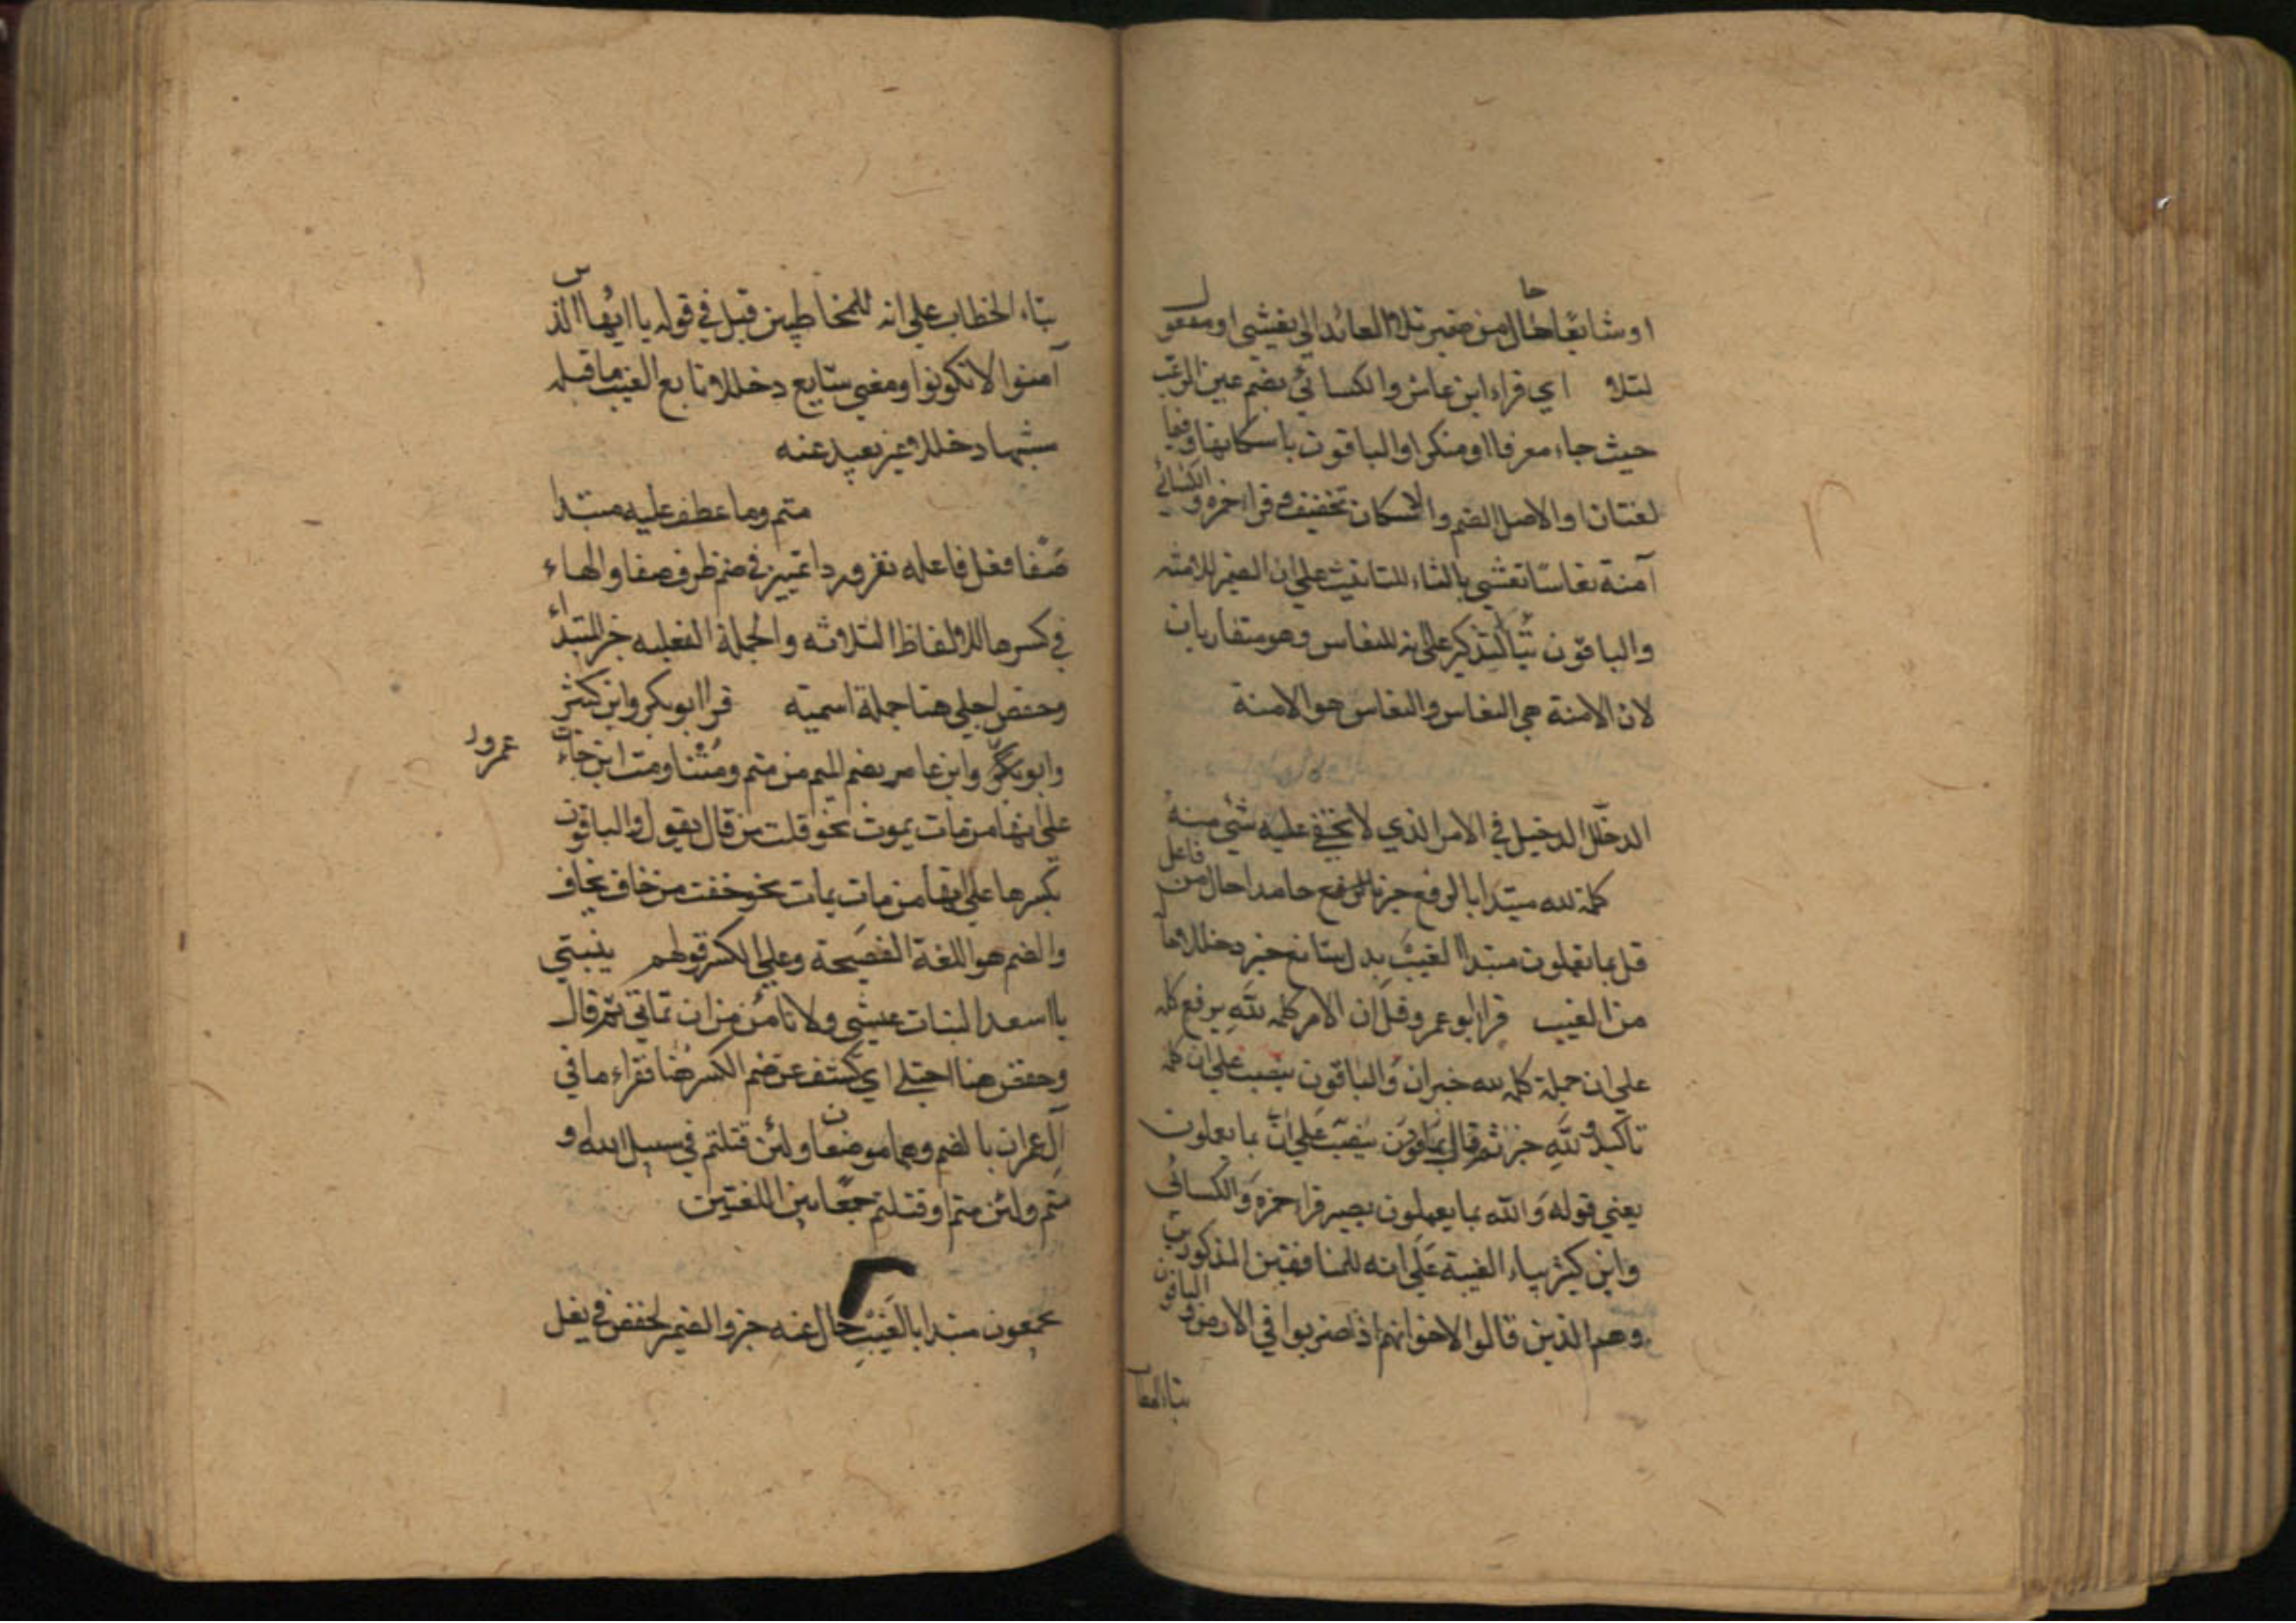 او شائعا حال من ضمير تلا العائد الى يغشى او مفعول
لتلا اي قراء ابن عامر والكسائي بضم عين الرعب
حيث جاء معرفا او منكرا والباقون باسكانها وهما
لغتان او الاصل الضم والاسكان تخفيف و قرا حمزه والكسائي
آمنة نعاسا تغشى بالتاء للتانيث على ان الضمير للامنه
والباقون بيا التذكير على انه للنعاس وهو متقاربان
لان الامنة هي النعاس والنعاس هو الامنة
الدخلل الدخيل في الامر الذي لا يخفى عليه شئ منه
كله لله مبتدا بالرفع خبر بالرفع حامدا حال من فاعل
قل بما تعملون مبتدا الغيب بدل شايع خبر دخللا
من الغيب قرا ابو عمرو قل ان الامر كله لله برفع كله
على ان جملة كله لله خبر ان والباقون بنصب على ان كله
تاكيد و لله خبر ثم قال بنصب على ان بما يعملون
يعني قوله والله بما يعملون بصير قرا حمزه والكسائي
وابن كثير بياء الغيبة على انه للمنافقين المذكورين
وهم الذين قالوا لاخوانهم اذا ضربوا في الارض والباقون
بتاء الخطاب
بتاء الخطاب على انه للمخاطبين قبل في قوله يا ايها الذين
آمنوا لا تكونوا ومعنى شايع دخللا تابع الغيب ما قبله
شبها دخللا غير بعيد عنه
متم وما عطف عليه مبتدا
صفا فعل فاعله نفر وردا تمييز في ضم ظرف صفا والهاء
في كسرها للالفاظ الثلاثه والجملة الفعليه خبر المبتداء
وحفص اجلى هنا جملة اسميه قرا ابو بكر وابن كثير
وابو عمرو وابن عامر بضم الميم من متم ومتنا ومت اين جاءت
على انها من مات يموت نحو قلت من قال يقول والباقون
بكسرها على انها من مات يمات نحو خفت من خاف يخاف
والضم هو اللغة الفصيحة وعلى الكسر قولهم بنيتي
يا اسعد البنات عيشي ولا نامن من ان تماتي ثم قال
وحفص هنا اجتلى اي كشف عن ضم الكسر هنا فقراء ما في
آل عمران بالضم وهما موضعان ولئن قتلتم في سبيل الله و
متم ولئن متم او قتلتم جمعا بين اللغتين
يجمعون مبتدا بالغيب حال عنه خبر والضمير لحفص في يغل